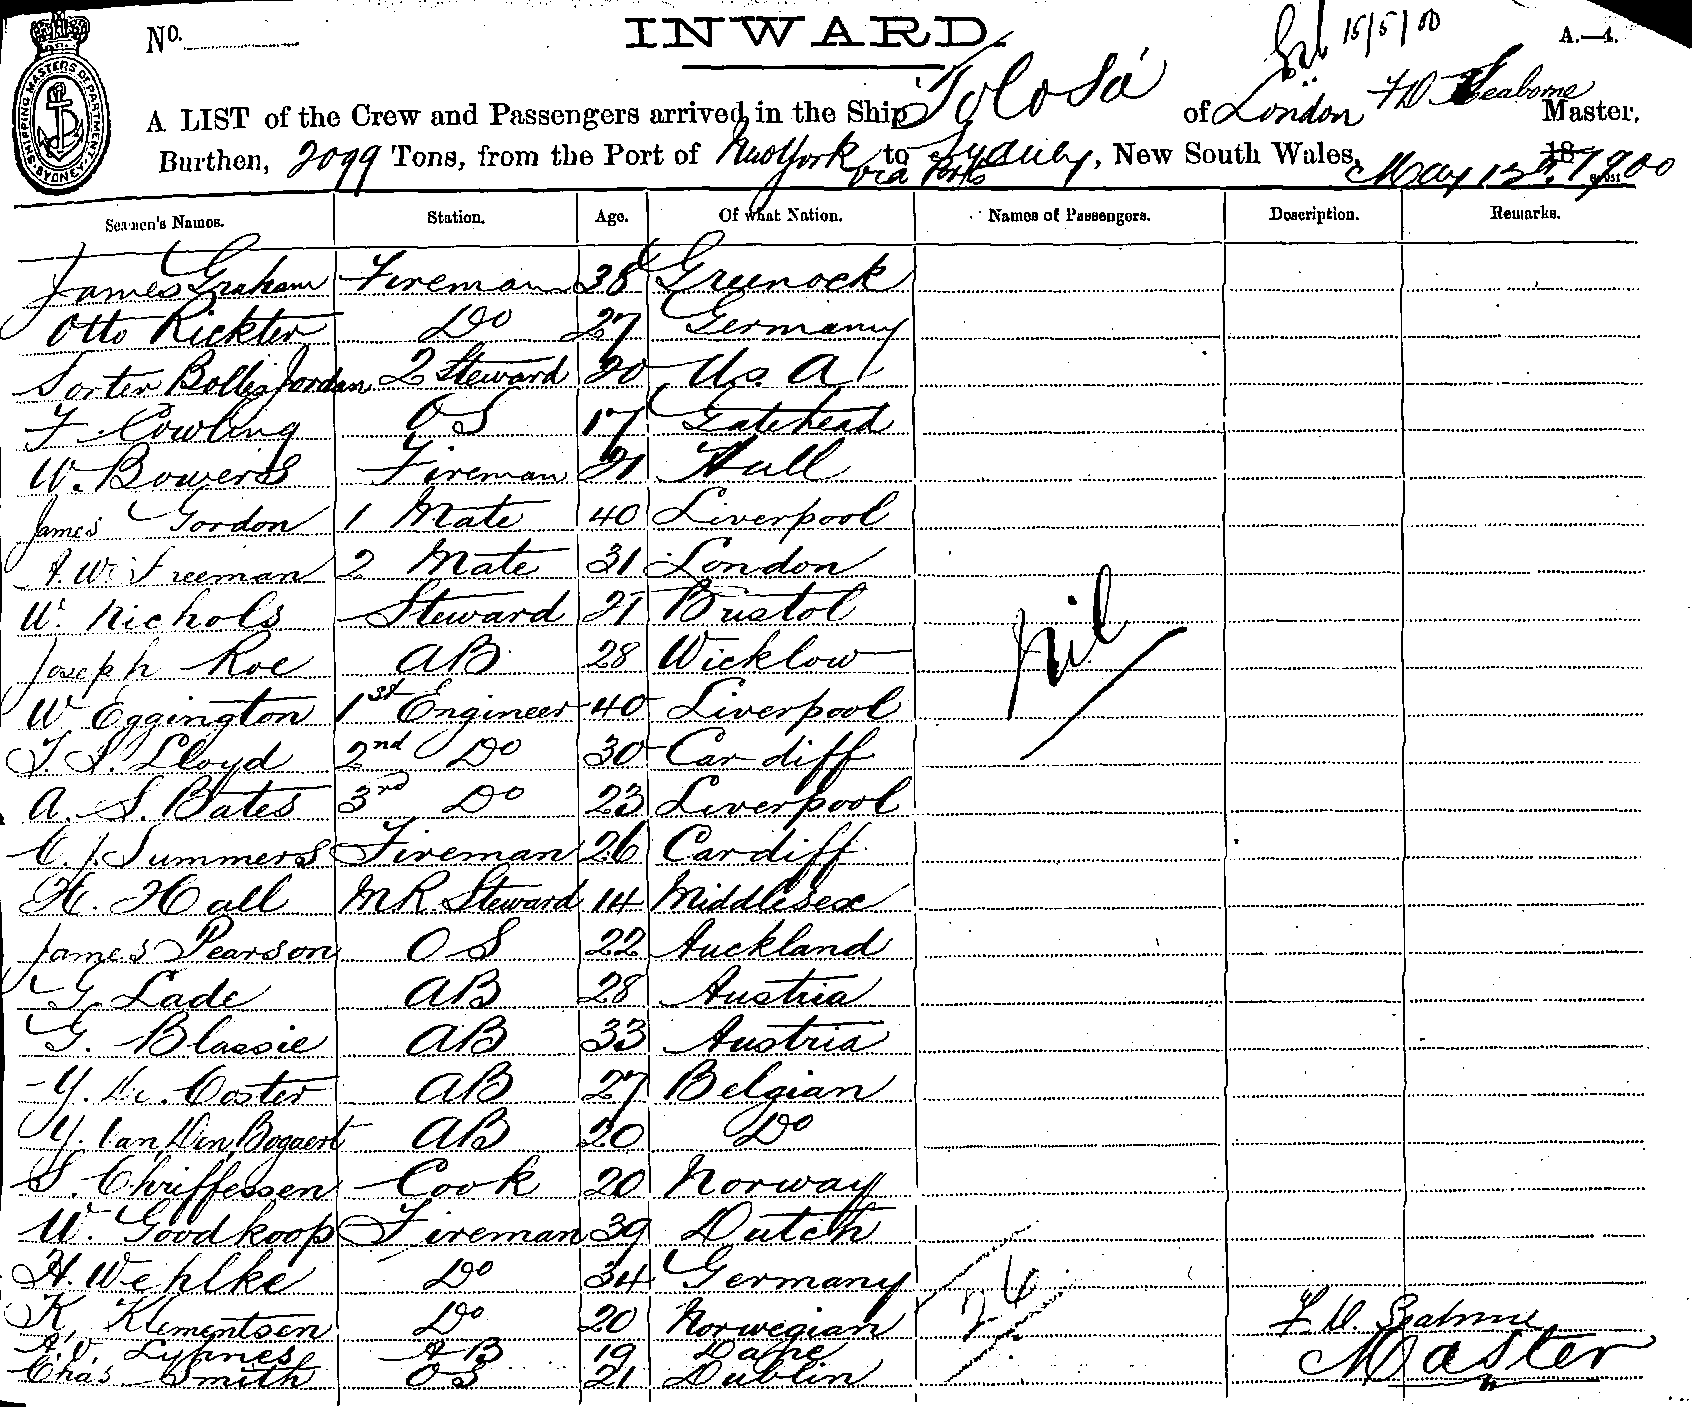 No.
INWARD.
15/5/00
A.—4.
SHIPPING MASTERS DEPARTMENT SYDNEY
A LIST of the Crew and Passengers arrived in the Ship Tolosa of London F W Seaborne Master,
Burthen, 2099 Tons, from the Port of New York to Sydney, New South Wales, May 12th 1900
via Ports
Seamen's Names. Station. Age. Of what Nation. Names of Passengers. Description. Remarks.
James Graham Fireman 38 Greenock
Otto Rickter Do 27 Germany
Sorter Bollis Jordan 2 Steward 20 U.S.A
F. Cowling OS 17 Gateshead
W. Bowers Fireman 21 Hull
James Gordon 1 Mate 40 Liverpool
A. W. Freeman 2 Mate 31 London
W. Nichols Steward 21 Bristol
Nil
Joseph Roe AB 28 Wicklow
W Eggington 1st Engineer 40 Liverpool
T. S. Lloyd 2nd Do 30 Cardiff
A. S. Bates 3rd Do 23 Liverpool
C. J. Summers Fireman 26 Cardiff
H. Hall MR Steward 14 Middlesex
James Pearson OS 22 Auckland
G. Lade AB 28 Austria
G. Blassie AB 33 Austria
Y. De. Coster AB 27 Belgian
Y. Van Den Bogaert AB 20 Do
S. Chriffessen Cook 20 Norway
W. Goodkoop Fireman 39 Dutch
H. Wehlke Do 34 Germany
26
K. Klementsen Do 20 Norwegian F. W. Seaborne
A. V. Lynnes AB 19 Dane Master
Chas Smith OS 21 Dublin